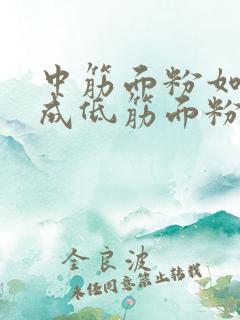 中筋面粉如
成低筋面粉
全良波
未经同意禁止转载